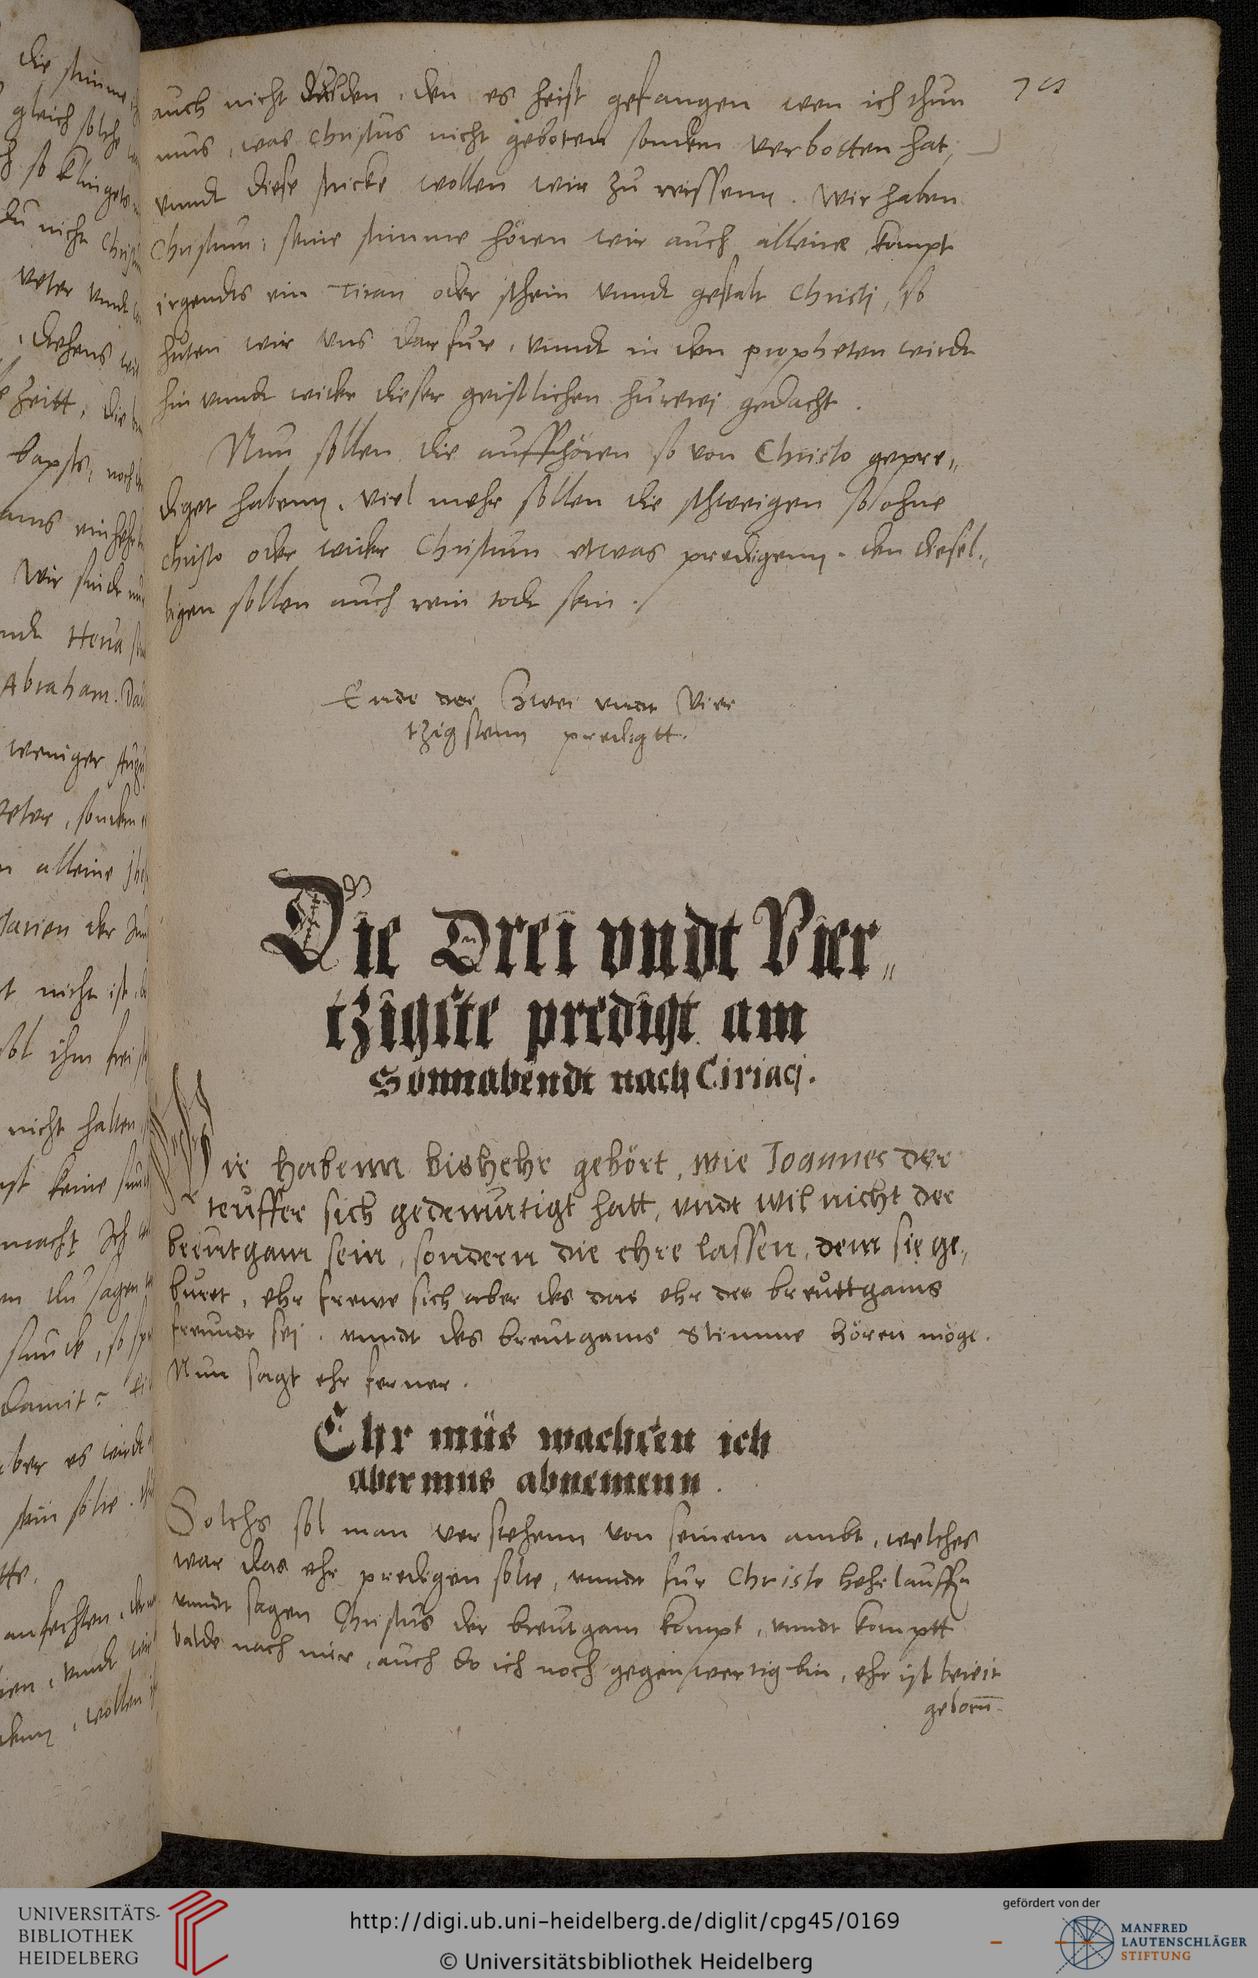 auch nicht dulden, den es heist gefangen wen ich thun
mus, was Christus nicht geboten sondern verbotten hat,
vnndt diese stucke wollen wir zu reissenn. Wir haben
Christum, seine stimme hören wir auch alleine, kompt
irgendts ein Tiran oder schein vnndt gestalt Christi, so
huten wir vns darfur, vnndt in den propheten wirdt
hin vnndt wider dieser geistlichen hurerei gedacht.
Nun sollen die auffhören so von Christo gepre„
diget habenn, viel mehr sollen die schweigen so ohne
Christo oder wider Christum etwas predigenn, den diesel„
bigen sollen auch rein todt sein.
Ende der Zwei vndt Vier
tzigstenn predigtt.
Die Drei vndt Vier„
tzigste predigt am
Sonnabendt nach Ciriaci.
Wir habenn bishehr gehört, wie Joannes der
teuffer sich gedemutigt hatt, vndt wil nicht der
breutgam sein, sondern die ehre lassen, dem sie ge„
buret, ehr frewe sich aber des das ehr des breuttgams
freundt sej, vnndt des breutgams stimme hören möge.
Nun sagt ehr ferner.
Ehr müs wachsen ich
aber mus abnemenn.
Solchs sol man verstehenn von seinem ambt, welches
war das ehr predigen solte, vnndt fur Christo hehrlauffen
vnndt sagen Christus der breutgam kompt, vnndt komptt
balde nach mir, auch do ich noch gegenwertig bin, ehr ist bereit
geborn.
die stimme
gleich solche
so klingets
du nicht
veter vndt
zeitt, die
bapsts, noch
Wir sindt
Heua
Abraham.
weniger
alleine
nicht ist
sol ihm frei
nicht halten
keine
macht Ich
du sagen
stuck, so
Damit
aber es wirdt
sein solte
anfechten
vndt wir
wollen
UNIVERSITÄTS-
BIBLIOTHEK
HEIDELBERG
http://digi.ub.uni-heidelberg.de/diglit/cpg45/0169
© Universitätsbibliothek Heidelberg
gefördert von der
MANFRED
LAUTENSCHLÄGER
STIFTUNG